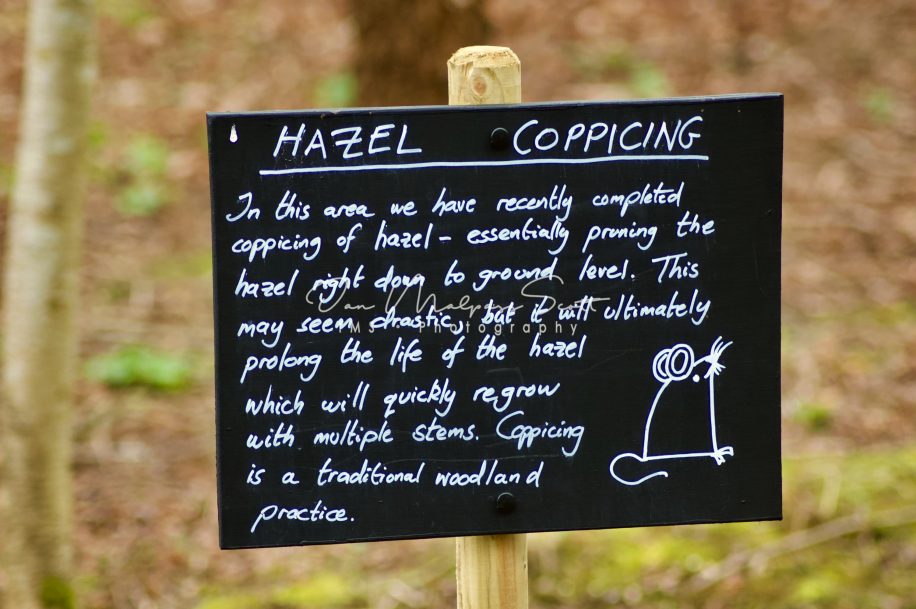 HAZEL COPPICING
In this area we have recently completed
coppicing of hazel – essentially pruning the
hazel right down to ground level. This
may seem drastic, but it will ultimately
prolong the life of the hazel
which will quickly regrow
with multiple stems. Coppicing
is a traditional woodland
practice.
Photography